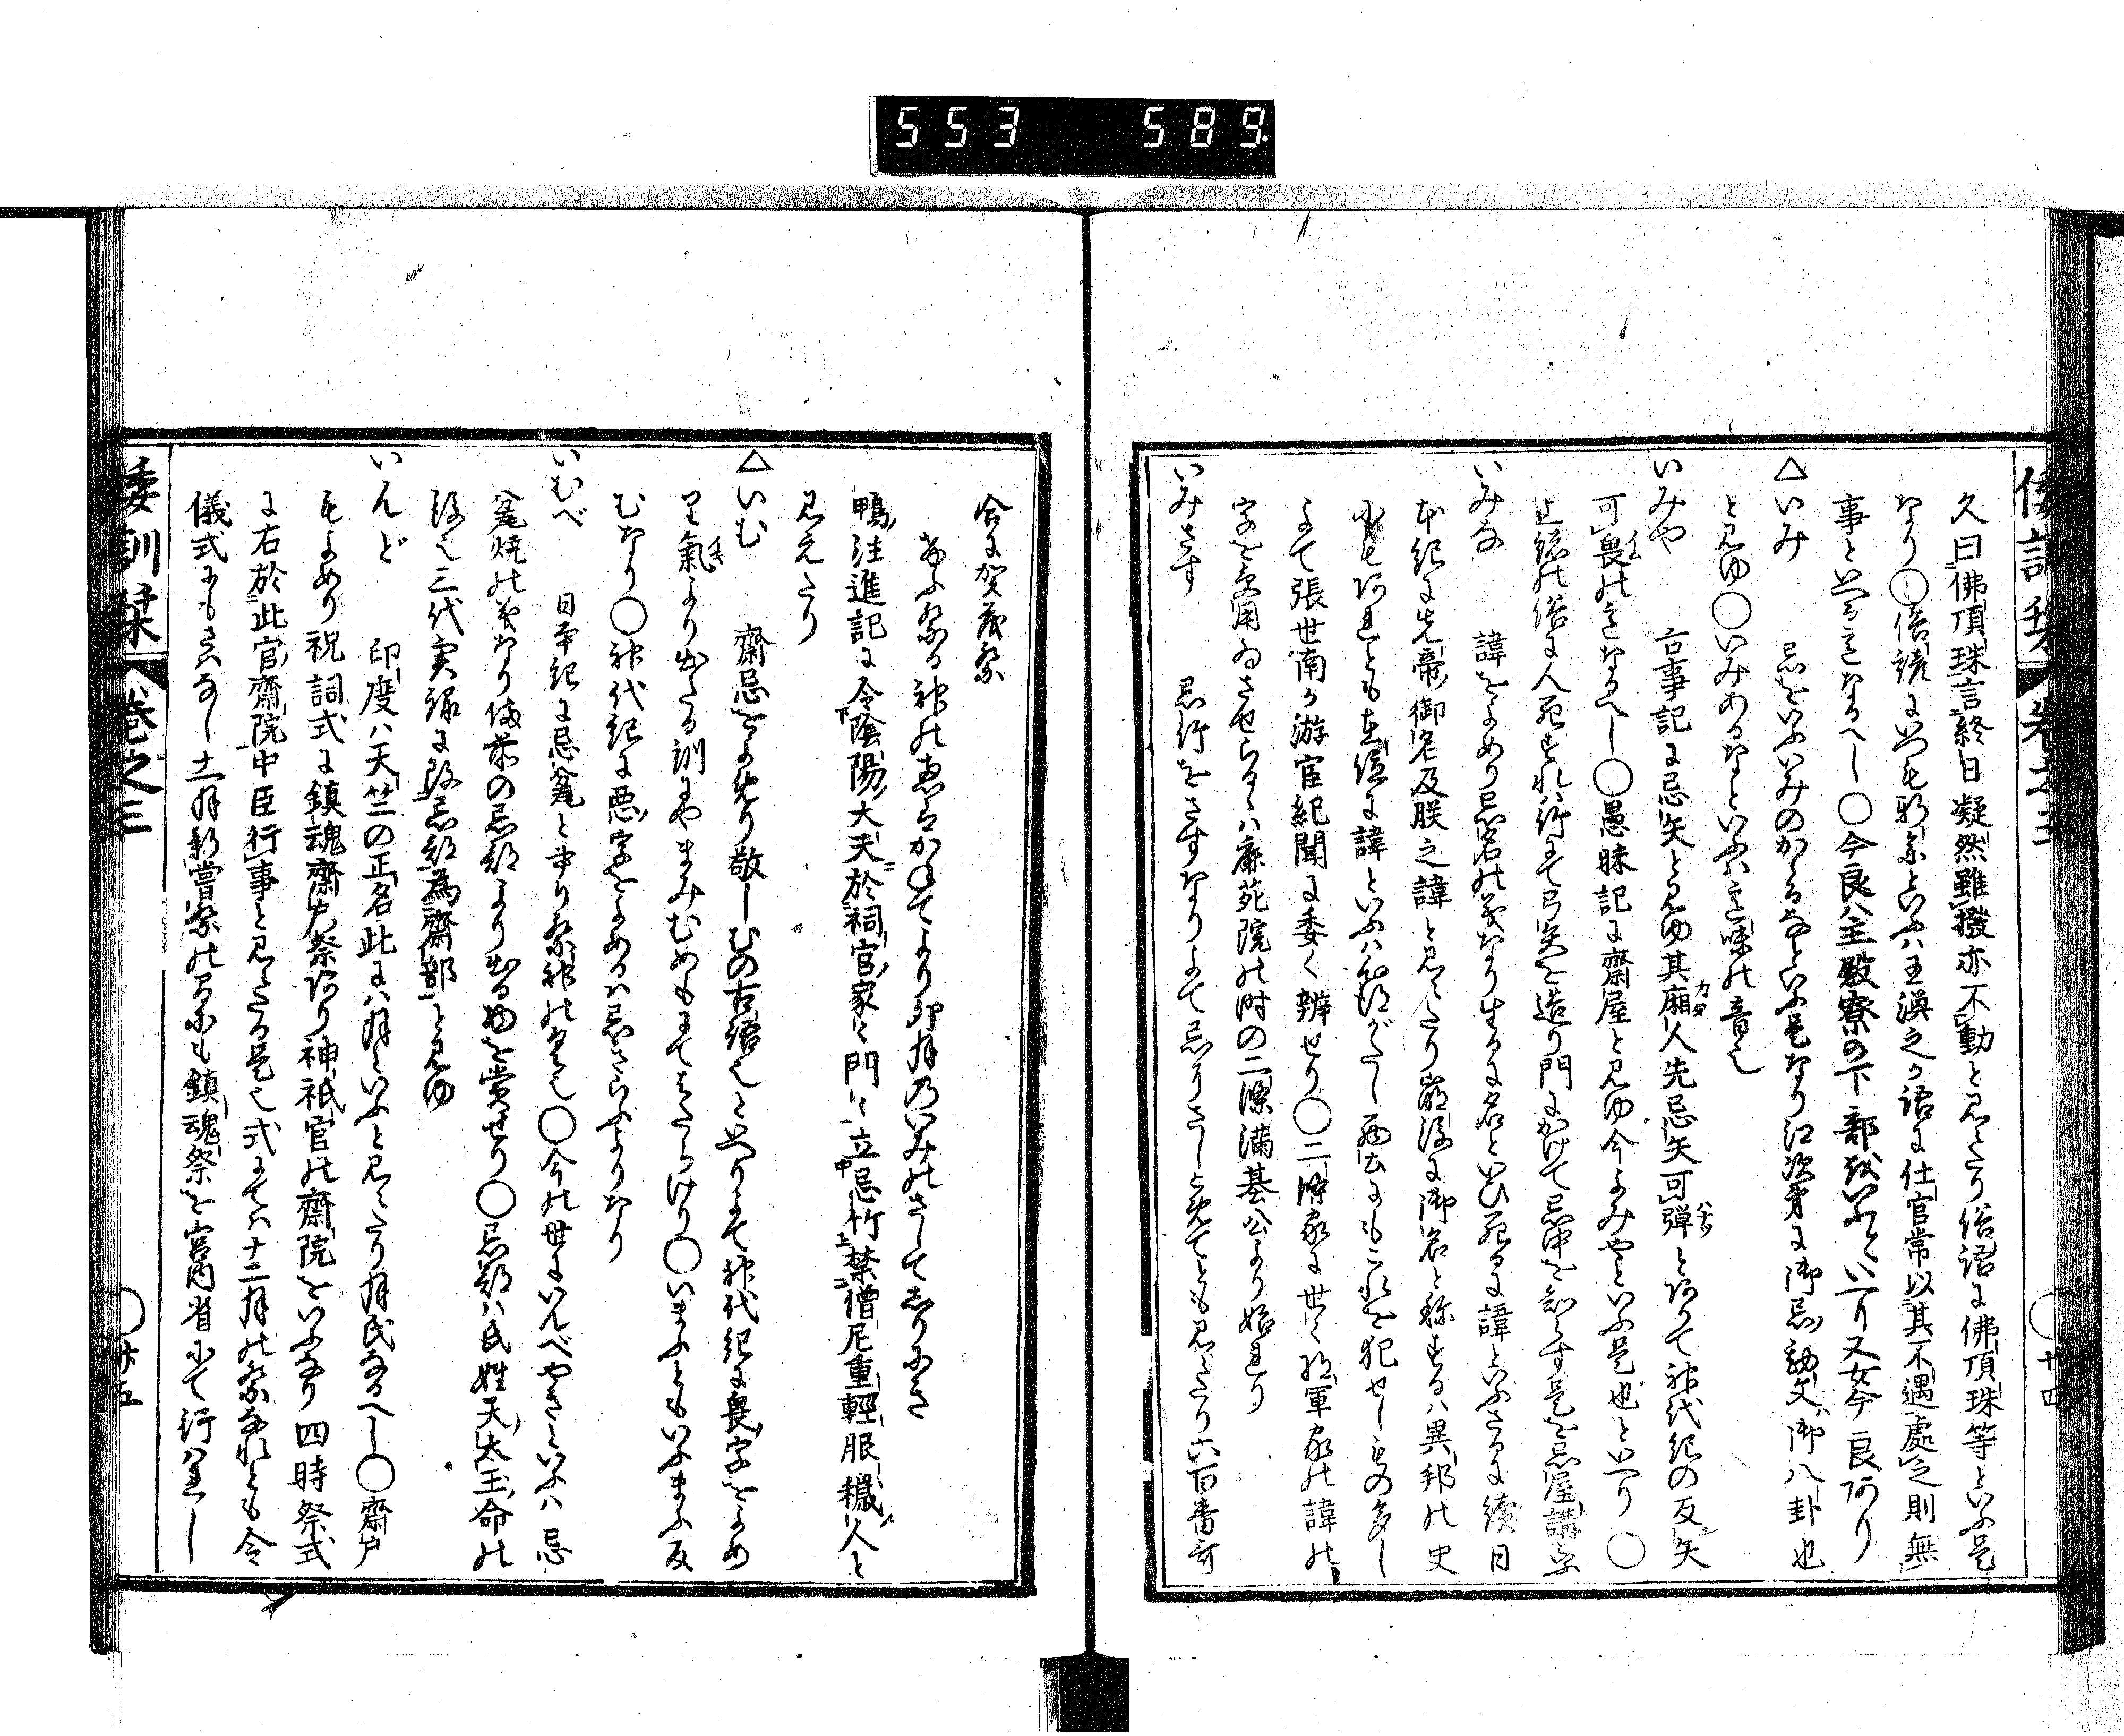 553 589.
倭訓栞 卷之三 ○廿四
久曰佛頂珠言終日凝然雖撥亦不動と見えたり俗語に佛頂珠等といふ是
なり○俗諺にいつも新忌といふハ王渙之か語に仕官常以其不遇處之則無
事といふ意なるへし○今良ハ主殿寮の下部をいふといへり又女今良あり
△いみ 忌をいふいみのかゝるなといふ是なり江次第に御忌勘文御八卦也
と見ゆ○いみあるなといふハ意味の音也
いみや 古事記に忌矢と見ゆ其廂人先忌矢可彈とありて神代紀の反矢
可畏の意なるへし○愚昧記に齋屋と見ゆ今よみやといふ是也といへり○
上総の俗に人死すれハ行て弓矢を造り門にかけて忌中を知らす是を忌屋講
いみな 諱をよめり忌名の義なり生るに名といひ死るに諱といふさるに續日
本紀に先帝御名及朕之諱と見えたり崩後に御名と称するハ異邦の史
にもあれとも生存に諱といふハ
よて張世南か游宦紀聞に委く辨せり○二條家に世々将軍家の諱の
字を用ゐさせらるゝハ鹿苑院の時の二條満基公より始れり
いみさす 忌竹をさすなりよて忌りさしと見えたり六百番哥
合に賀茂祭
あふ祭る神の恵を かねてより卯月乃いみのさしてしりにき
鴨注進記に令陰陽大夫於祠官家々門々立忌竹禁僧尼重輕服穢人と
見えたり
△いむ 齋忌をよめり敬しむの古語也といへりよて神代紀に畏字をよめ
り氣より出たる訓にややまみむめもにてはたらけり○いまふともいふまふ反
むなり○神代紀に悪字をよめるハ忌きらふよりなり
いむべ 日本紀に忌瓮と書り祭神の具也○今の世にいんべやきといふハ忌
瓮焼の義なり備前の忌部より出る物を賞せり○忌部ハ氏姓天太玉命の
後也三代実録に改忌部為齋部と見ゆ
いんど 印度ハ天竺の正名此にハ月といふと見えたり月氏なるへし○齋戸
をよめり祝詞式に鎮魂齋戸祭あり神祇官の齋院をいふなり四時祭式
に右於此官齋院中臣行事と見えたる是也式にてハ十二月の祭なれとも今
儀式にもさハなし十一月新嘗祭の前にも鎮魂祭を宮内省にて行ハれし
倭訓栞 卷之三 ○廿五